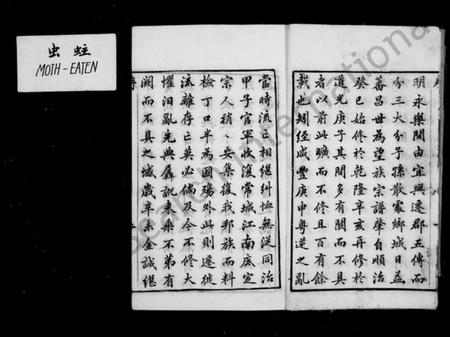 虫蛀
MOTH-EATEN
明永樂間由宜興遷郡五傳而
分三大分子孫散處鄉城日益
蕃昌世為望族宗譜肇自順治
癸巳始修於乾隆辛亥再修於
道光庚子其間多有闕而不具
者以前此曠而不修且百有餘
載也矧經咸豐庚申粵逆之亂
當時流亡相繼糾恤無從同治
甲子官軍收復常城江南底定
宗人稍、安集復我邦族而料
檢丁口半為國殤外此則遷徙
流離存亡莫必倘及今不修大
懼汨亂先典厲訛來乘不第有
闕而不具之憾歲辛未金誠繼